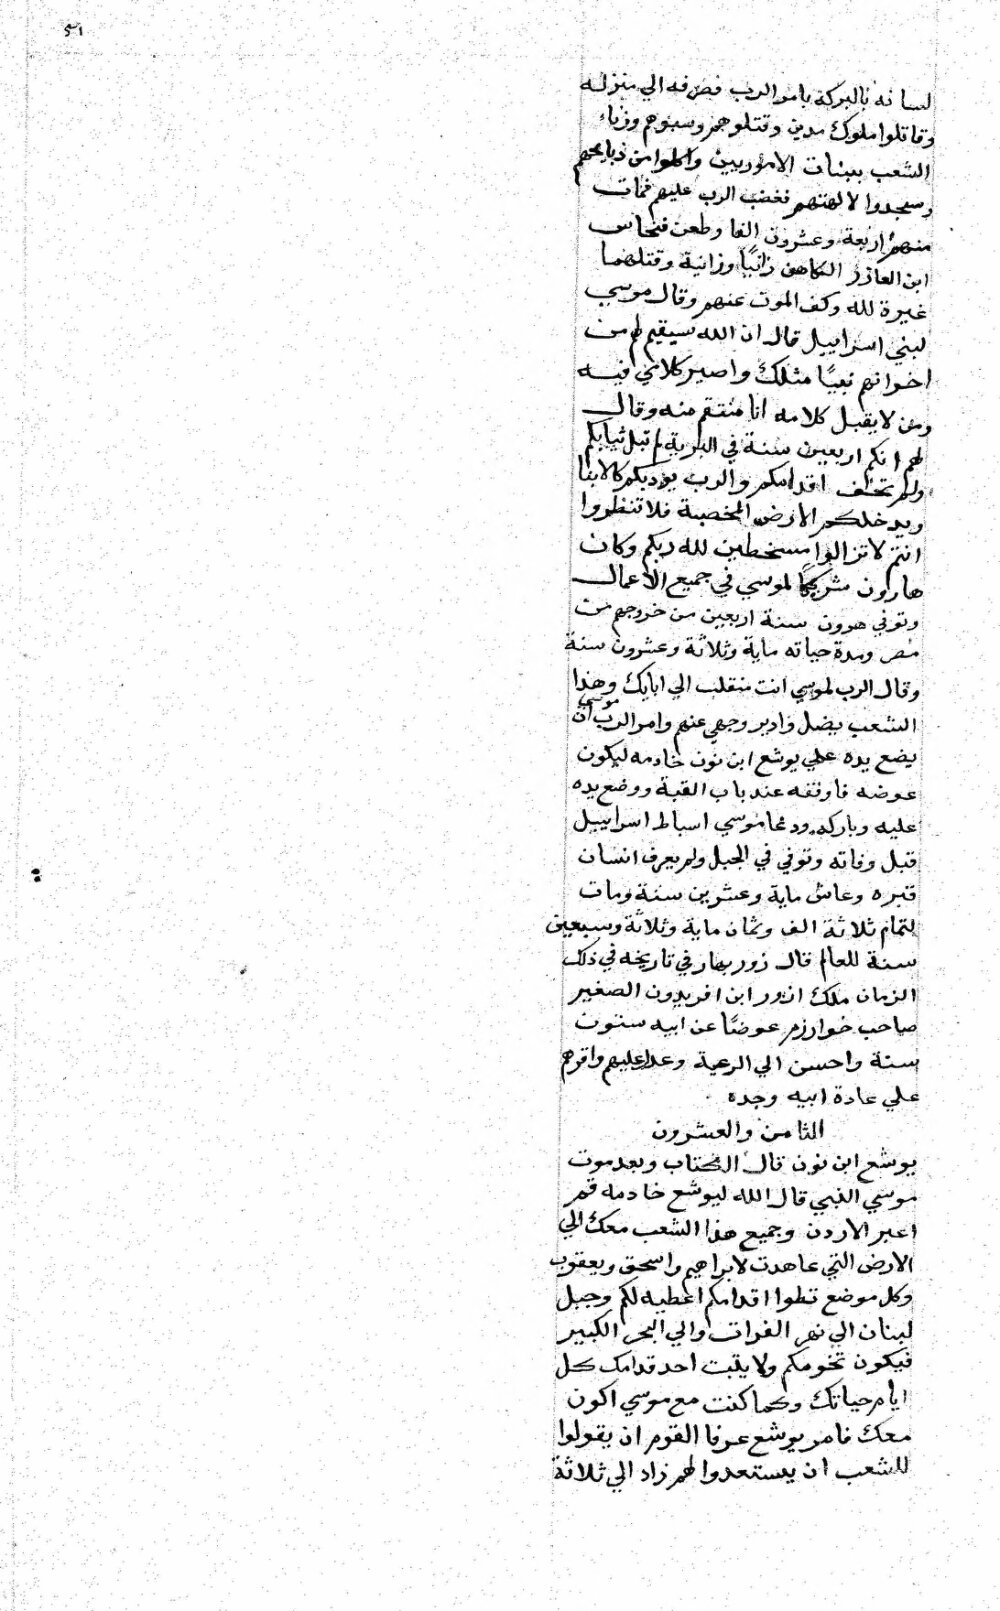 لسانه بالبركة بامر الرب فصرفه الي منزله
وقاتلوا ملوك مدين وقتلوهم وسبوهم وزناء
الشعب ببنات الاموريين واكلوا من ذبايحهم
وسجدوا لالهتهم فغضب الرب عليهم فمات
منهم اربعة وعشرون الفا وطعن فنحاس
ابن العازر الكاهن زانيًا وزانية وقتلهما
غيرة لله وكف الموت عنهم وقال موسي
لبني اسراييل قال ان الله سيقيم لهم من
اخوانهم نبيًا مثلك واصير كلامي فيه
ومن لا يقبل كلامه انا منتقم منه وقال
لهم انكم اربعين سنة في البرية لم تبل ثيابكم
ولم تحف اقدامكم والرب يودبكم كالابنا
ويدخلكم الارض المخصبة فلا تنظروا
انتم لا تزالوا مسخطين لله ربكم وكان
هارون شريكًا لموسي في جميع الاعمال
وتوفي هرون سنة اربعين من خروجهم من
مصر ومدة حياته ماية وثلاثة وعشرون سنة
وقال الرب لموسي انت منقلب الي ابايك وهذا
الشعب يضل وادير وجهي عنهم وامر الرب موسي ان
يضع يده علي يوشع ابن نون خادمه ليكون
عوضه فاوقفه عند باب القبة ووضع يده
عليه وباركه ودعا موسي اسباط اسراييل
قبل وفاته وتوفي في الجبل ولم يعرف انسان
قبره وعاش ماية وعشرين سنة ومات
لتمام ثلاثة الف وثمان ماية وثلاثة وسبعين
سنة للعالم قال زوربهار في تاريخه في ذلك
الزمان ملك ابن افريدون الصغير
صاحب خوارزم عوضًا عن ابيه ستون
سنة واحسن الي الرعية وعدل عليهم واقرهم
علي عادة ابيه وجده
الثامن والعشرون
يوشع ابن نون قال الكتاب وبعد موت
موسي النبي قال الله ليوشع خادمه قم
اعبر الاردن وجميع هذا الشعب معك الي
الارض التي عاهدت لابراهيم واسحق ويعقوب
وكل موضع تطوا اقدامكم اعطيه لكم وجبل
لبنان الي نهر الفرات والي البحر الكبير
فيكون تخومكم ولا يثبت احد قدامك كل
ايام حياتك وكما كنت مع موسي اكون
معك فامر يوشع عرفا القوم ان يقولوا
للشعب ان يستعدوا لهم زاد الي ثلاثة